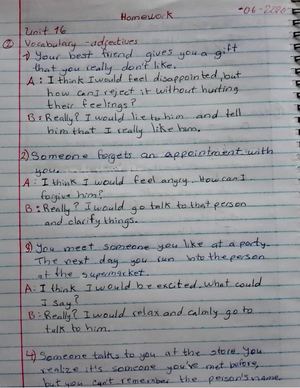 Homework
-06-2020
Unit 16
② Vocabulary - adjectives
1) Your best friend gives you a gift
that you really don't like.
A: I think I would feel disappointed, but
how can I reject it without hurting
their feelings?
B: Really? I would lie to him and tell
him that I really like him.
2) Someone forgets an appointment with
you.
A: I think I would feel angry. How can I
forgive him?
B: Really? I would go talk to that person
and clarify things.
3) You meet someone you like at a party.
The next day you run into the person
at the supermarket.
A: I think I would be excited, what could
I say?
B: Really? I would relax and calmly go to
talk to him.
4) Someone talks to you at the store. You
realize it's someone you've met before,
but you can't remember the person's name.